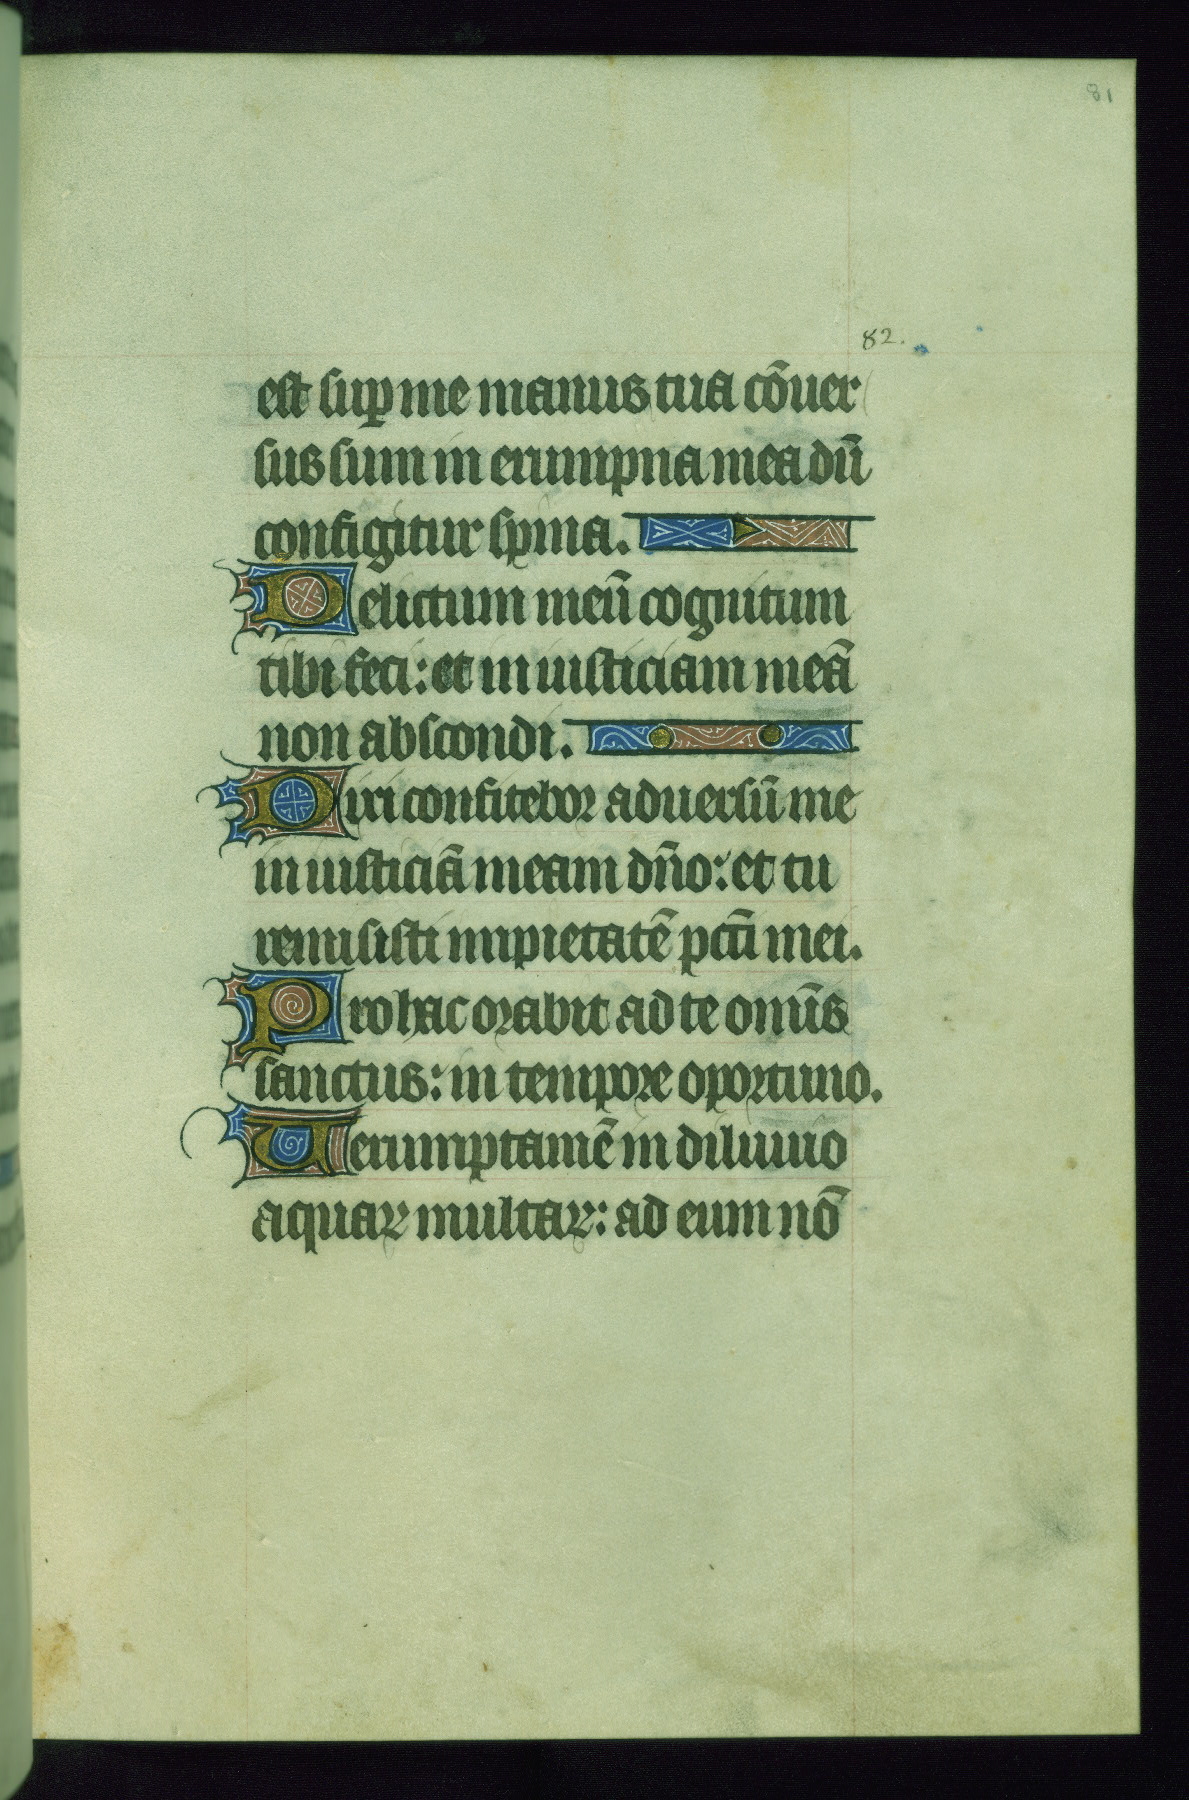 81
82.
est sup me manus tua cōuer
sus sum in erumpna mea dū
configitur spina.
Delictum meū cognitum
tibi feci: et iniusticiam meā
non abscondi.
Dixi confitebor aduersū me
iniusticiā meam dn̄o: et tu
remisisti impietatē pcc̄i mei.
Pro hac orabit ad te omīs
sanctus: in tempore oportuno.
Uerumptamē in diluuio
aquaꝝ multaꝝ: ad eum nō